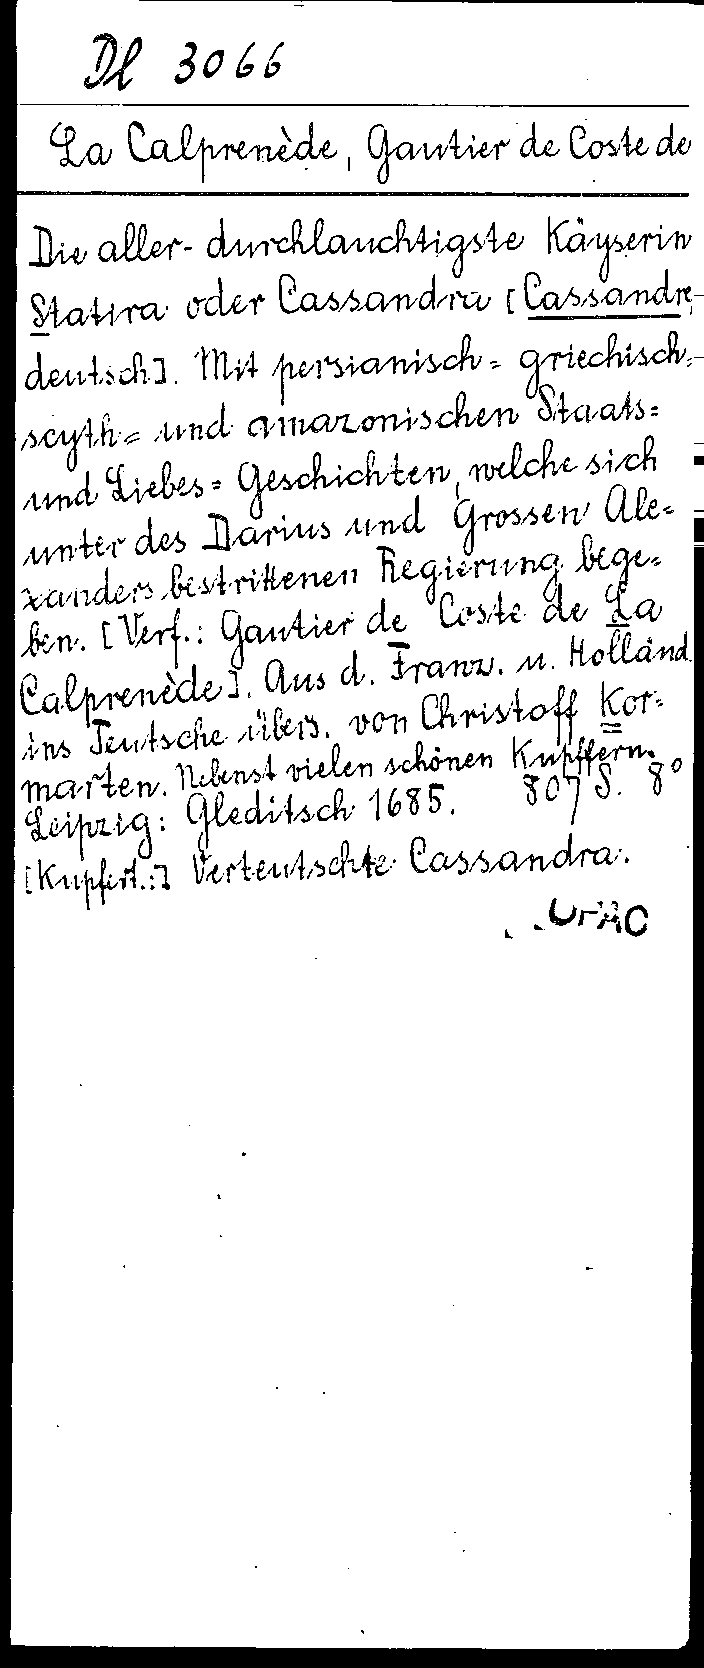 Dl 3066
La Calprenède, Gautier de Coste de
Die aller-durchlauchtigste Käyserin
Statira oder Cassandra [Cassandre,
deutsch]. Mit persianisch= griechisch=
scyth= und amazonischen Staats=
und Liebes=Geschichten, welche sich
unter des Darius und Grossen Ale=
xanders bestrittenen Regierung bege=
ben. [Verf.: Gautier de Coste de La
Calprenède]. Aus d. Franz. u. Holländ.
ins Teutsche übers. von Christoff Kor=
marten. Nebenst vielen schönen Kupffern.
Leipzig: Gleditsch 1685. 807 S. 8°
[Kupfert.:] Verteutschte Cassandra.